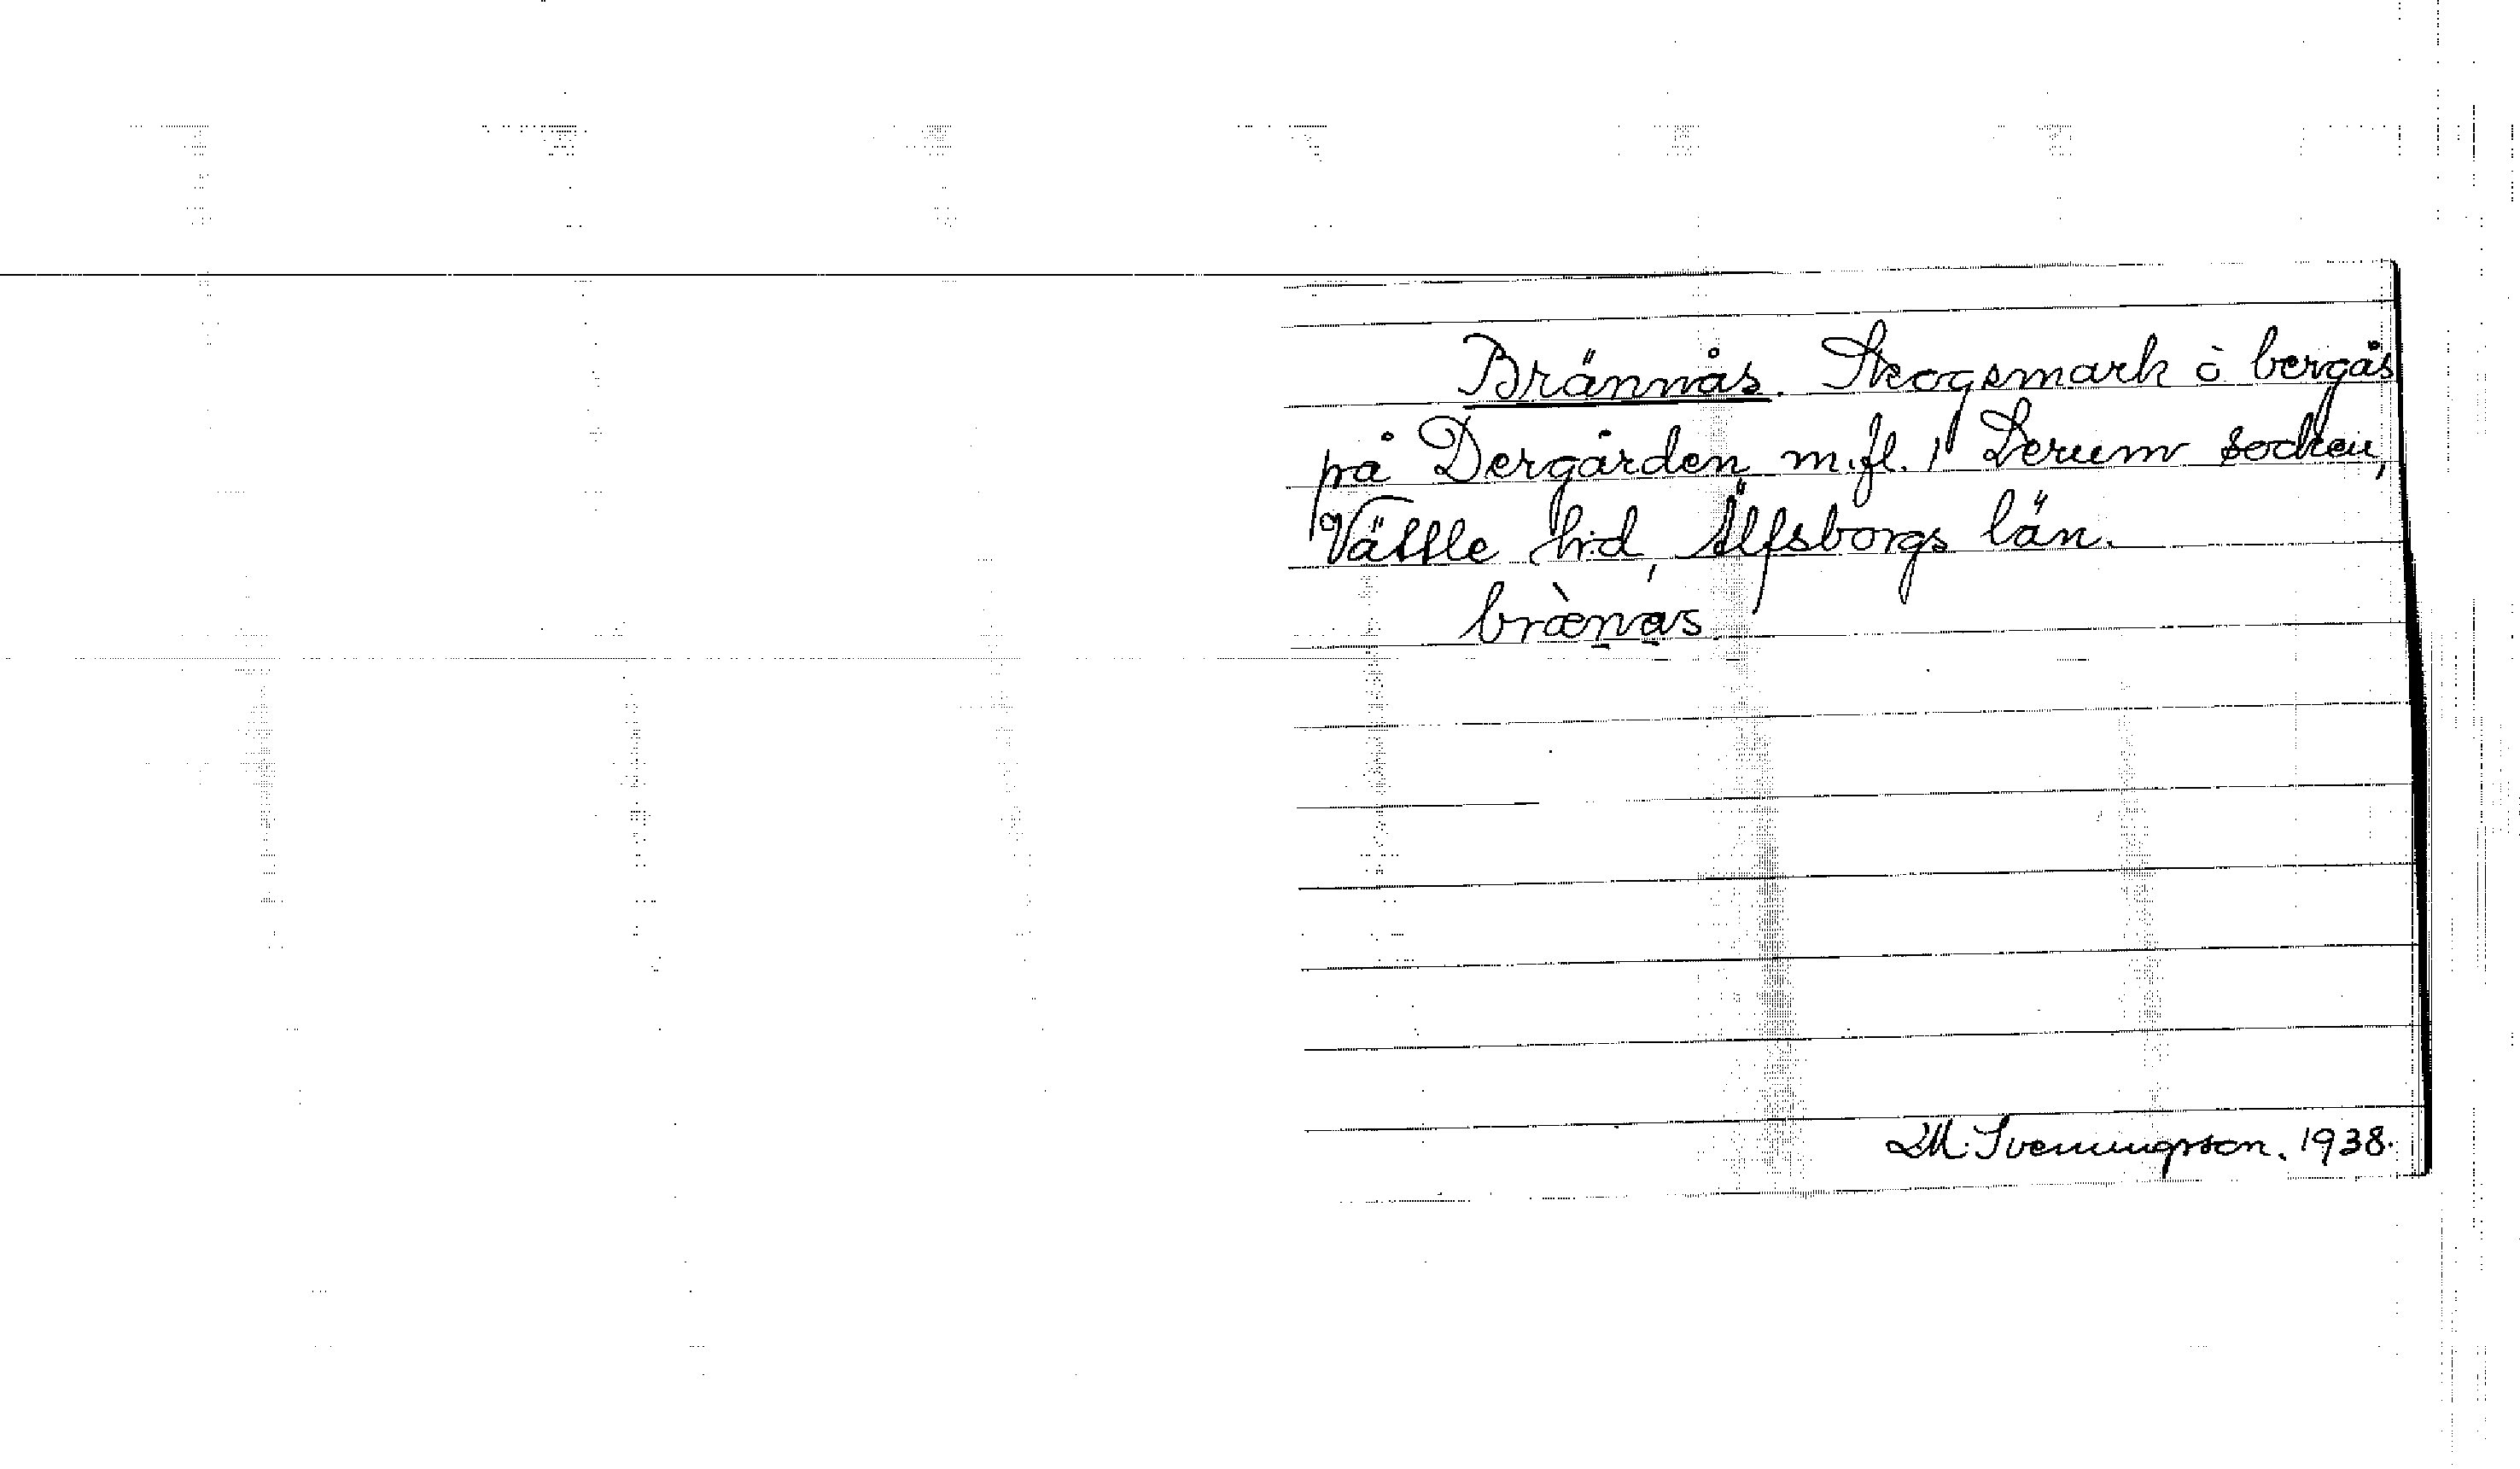 Brännås. Skogsmark o bergås
på Dergården m.fl. i Lerum socken,
Vättle h:d, Älfsborgs län.
brænas
M. Svenningsson. 1938.